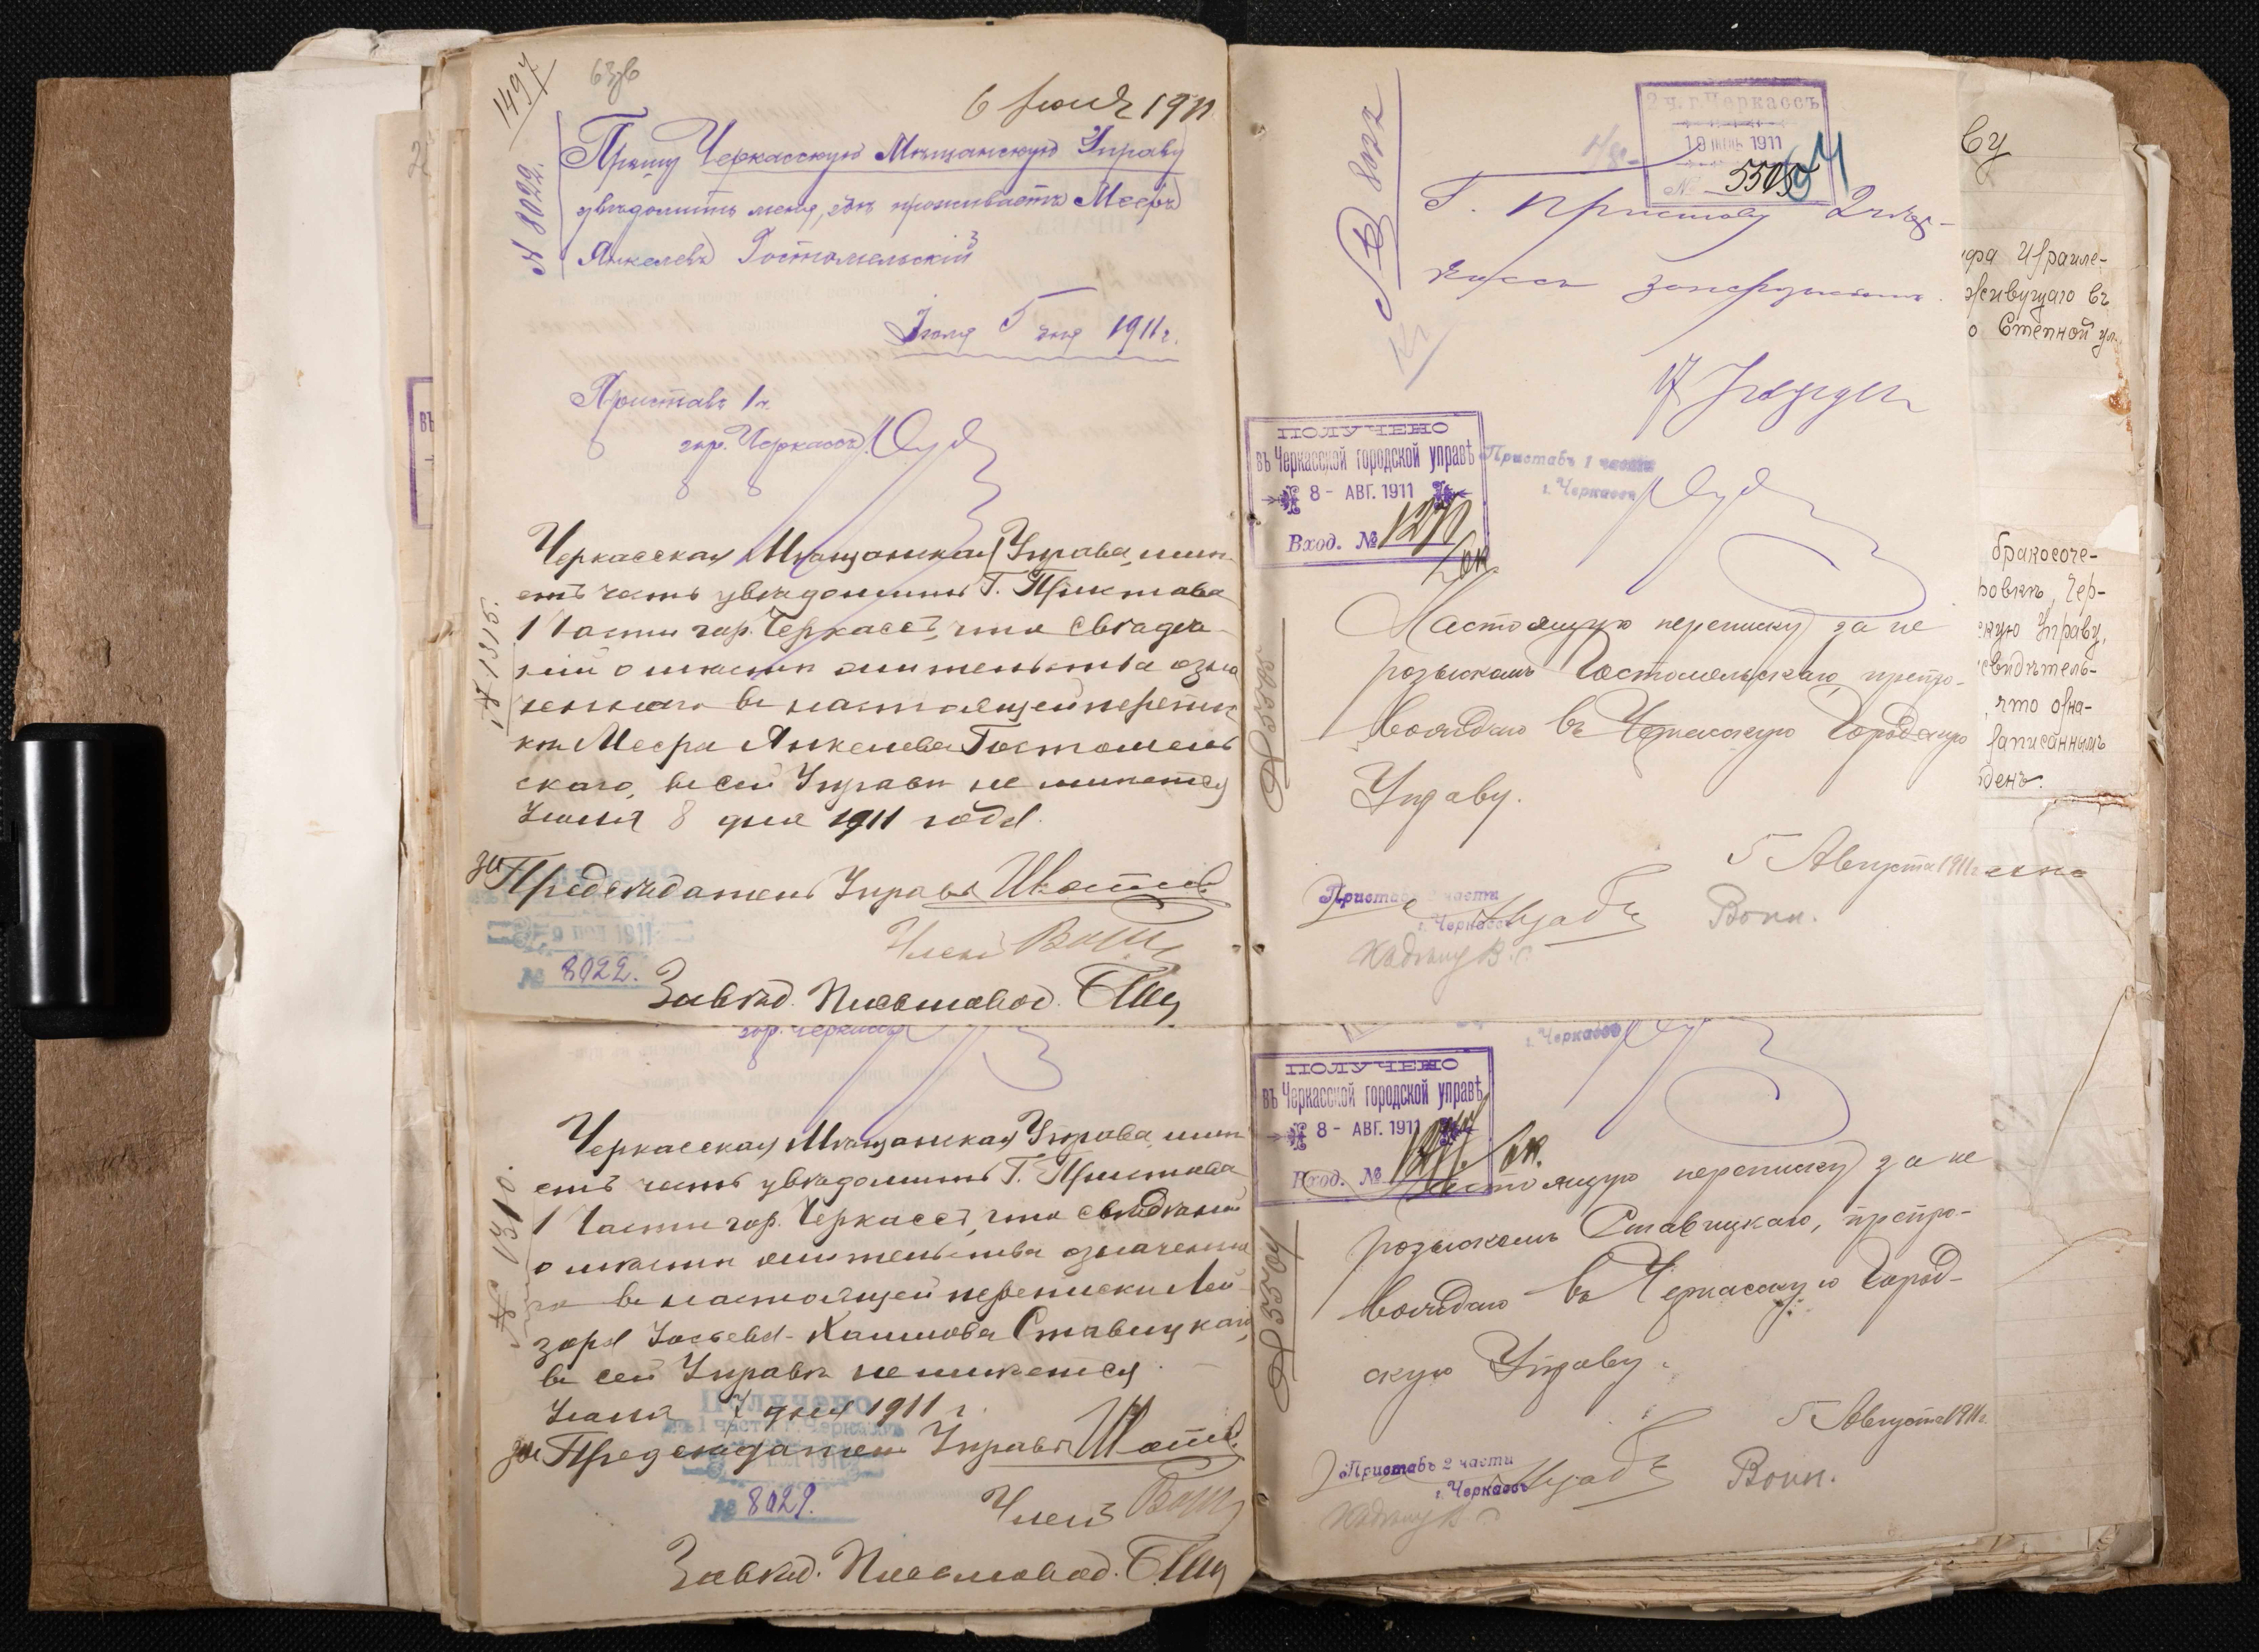 1497
6 Июля 1911
№ 8022.
Прошу Черкасскую Мѣщанскую Управу
увѣдомить меня, гдѣ проживаетъ Мееръ
Янкелевъ Гостомельскій
Іюля 5 дня 1911 г.
Приставъ 1 ч.
гор. Черкассъ
Черкасская Мѣщанская Управа, имѣ-
етъ честь увѣдомить Г. Пристава
1 Части гор. Черкассъ, что свѣдѣ-
ній о мѣстѣ жительства озна
ченнаго въ настоящей перепис
кѣ Меера Янкелева Гостомель
скаго, въ сей Управѣ не имѣется
Іюля 8 дня 1911 года.
№ 1315.
за Предсѣдатель Управы
Членъ
9 1911
№ 8022.
Завѣд. Письмовод.
гор. Черкассъ
Черкасская Мѣщанская Управа, имѣ
етъ честь увѣдомить Г. Пристава
1 Части гор. Черкассъ, что свѣдѣній
о мѣстѣ жительства означенна
го въ настоящей переписки Лей
зора Іосьева-Хаимова Ставицкаго,
въ сей Управѣ не имѣется.
Іюля 7 дня 1911 г.
№ 1310.
Получено
въ 1 части г. Черкассъ
за Предсѣдатель Управы
№ 8029.
Членъ
Завѣд. Письмовод.
№ 8022
2 ч. г. Черкассъ
1911
№ 5505
Г. Приставу 2 ч. Чер-
кассъ
ПОЛУЧЕНО
въ Черкасской городской управѣ
8 - АВГ. 1911
Вход. №
Приставъ 1 части
г. Черкассъ
Настоящую переписку за не
розыскомъ Гостомельскаго, препро-
вождаю въ Черкасскую Городскую
Управу.
№ 5505
5 Августа 1911 г.
Приставъ 2 части
г. Черкассъ
г. Черкассъ
ПОЛУЧЕНО
въ Черкасской городской управѣ
8 - АВГ. 1911
Вход. №
Настоящую переписку за не
розыскомъ Ставицкаго, препро-
вождаю въ Черкасскую Город-
скую Управу.
№ 5504
5 Августа 1911 г.
Приставъ 2 части
г. Черкассъ
ву
ифа Израиле-
живущаго въ
о Степной ул.
бракосоче-
ровкѣ, Чер-
скую Управу,
свидѣтель-
, что озна-
записаннымъ
денъ.